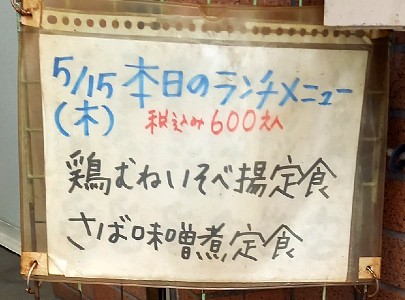 5/15 本日のランチメニュー
(木) 税込み600円
鶏むねいそべ揚定食
さば味噌煮定食